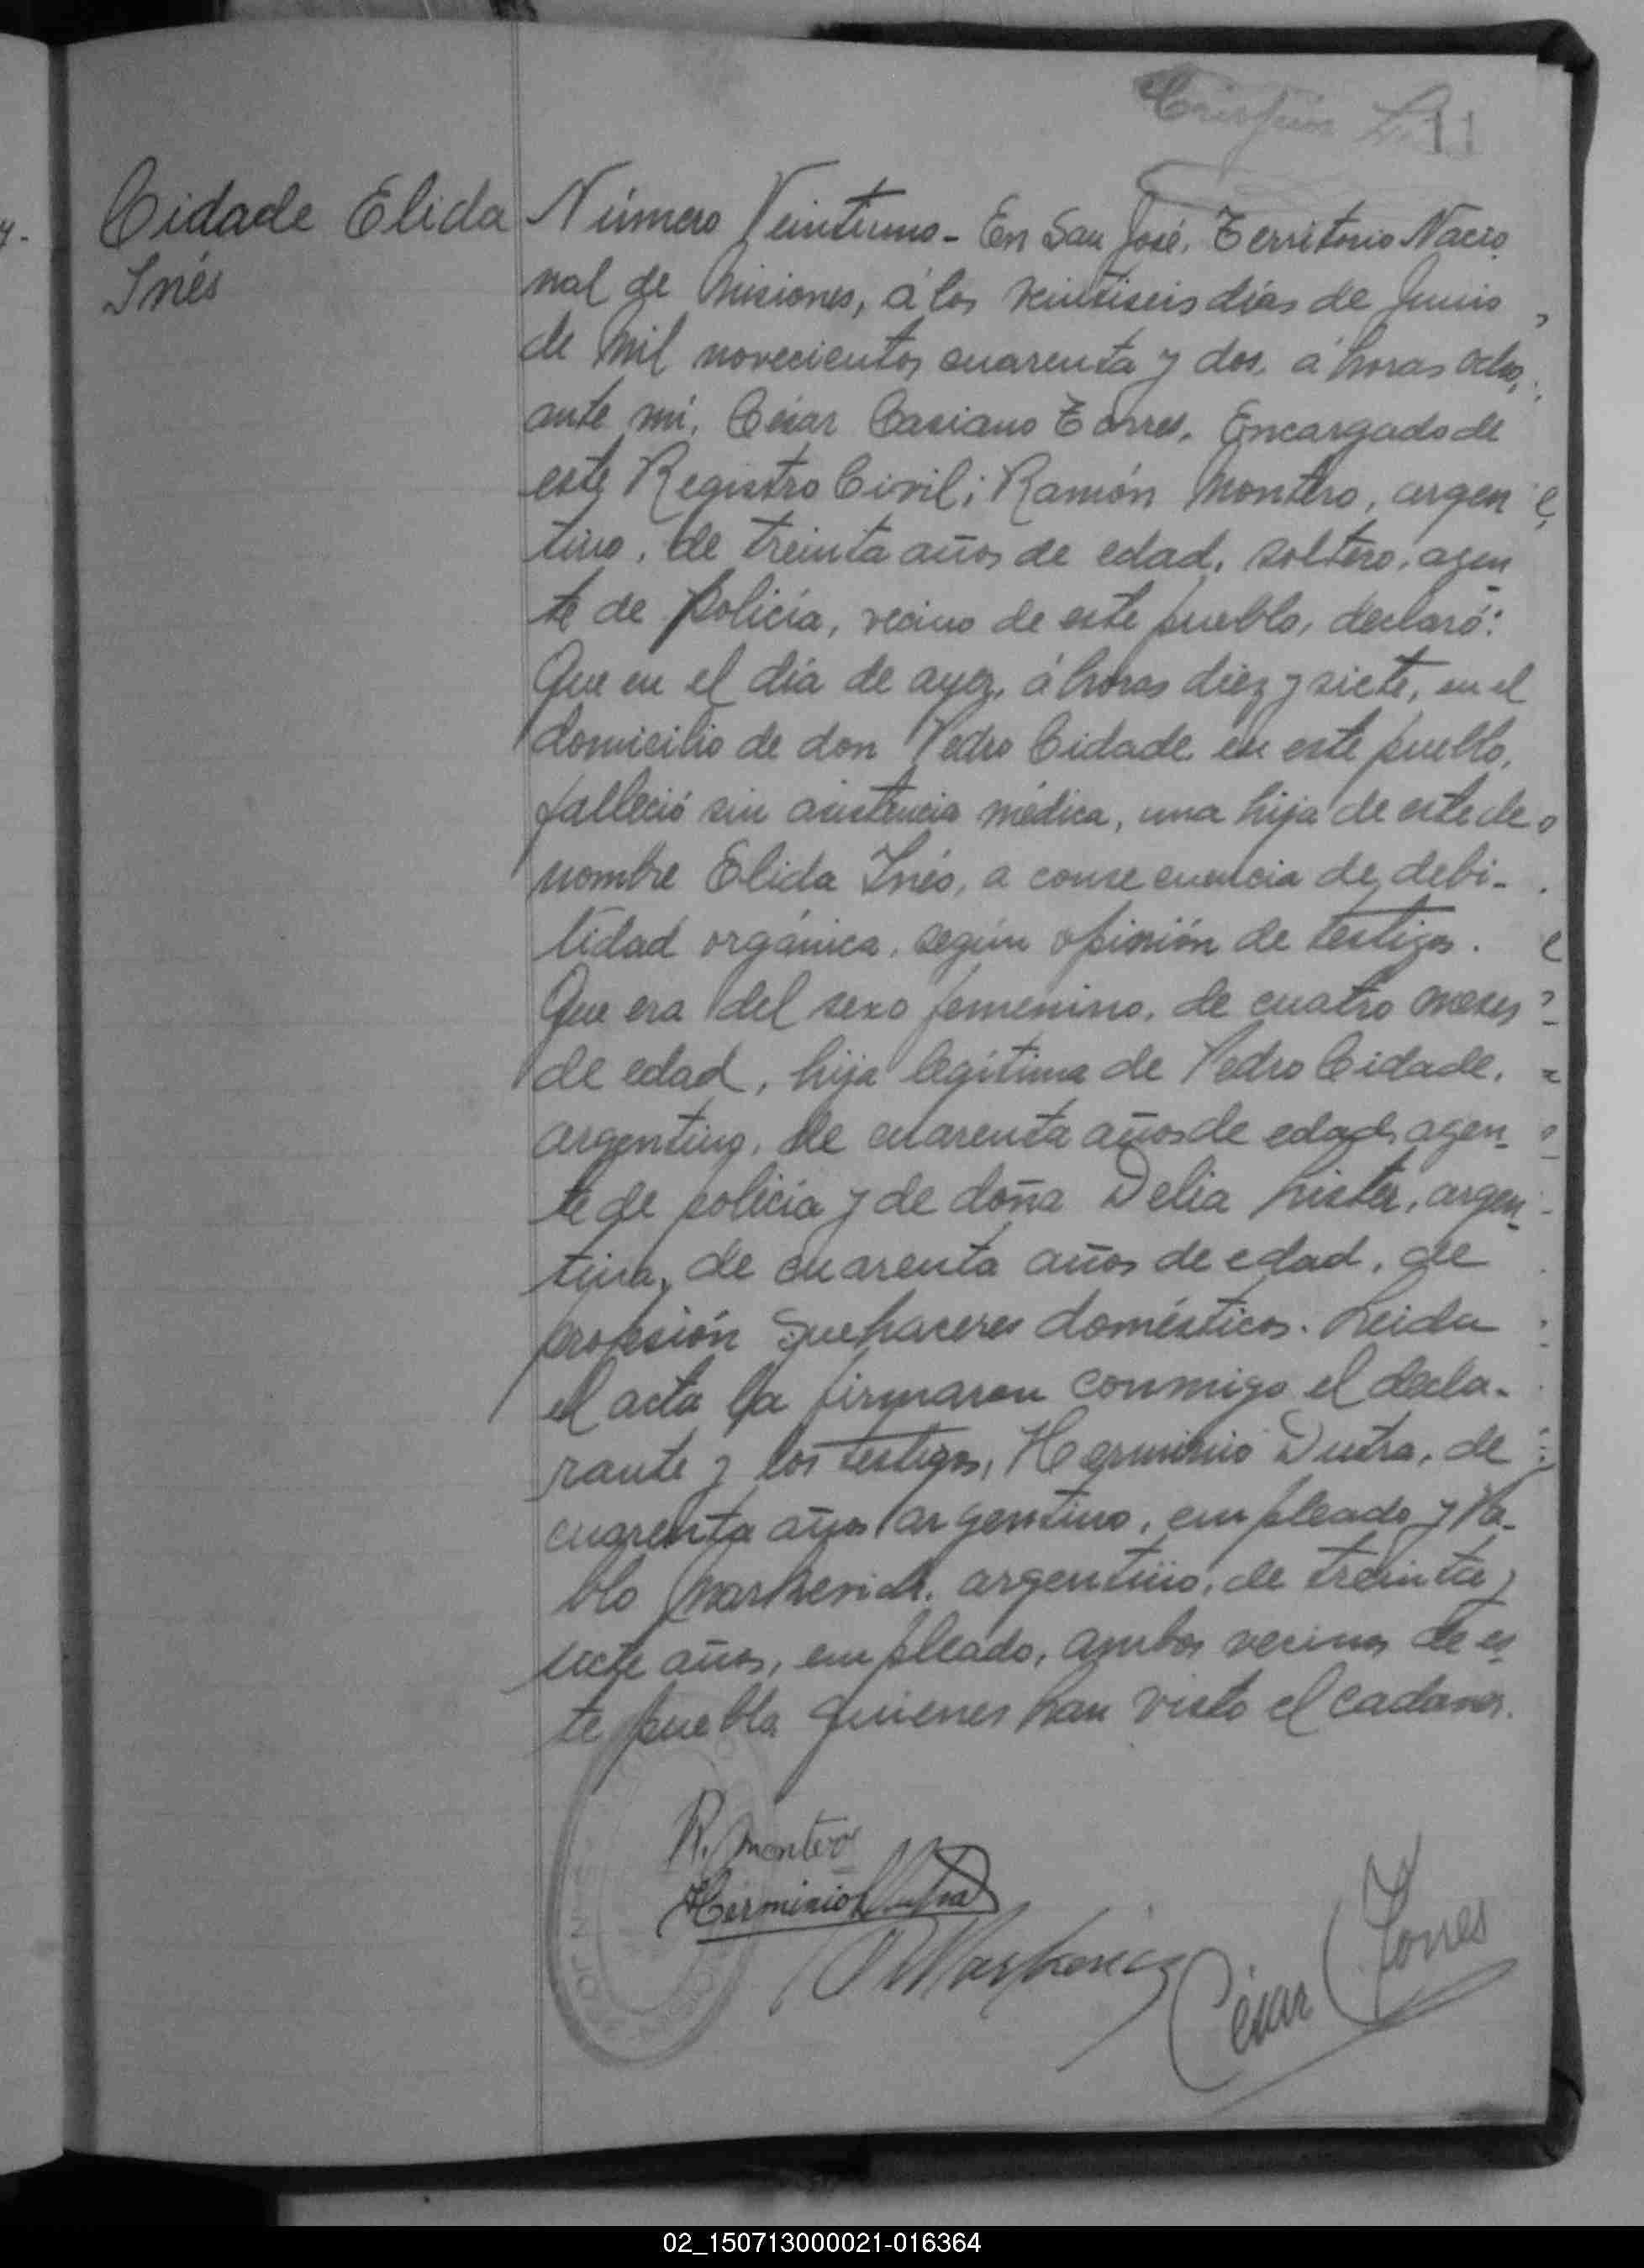 11
Cidade Elida
Inés
Número Veintiuno - En San José, Territorio Nacio
nal de Misiones, á los veintiseis dias de Junio
de mil novecientos cuarenta y dos, á horas ocho,
ante mi, César Casiano Torres, Encargado de
este Registro Civil; Ramón Montero, argen
tino, de treinta años de edad, soltero, agen
te de policía, vecino de este pueblo, declaró:
Que en el día de ayer, á horas diez y siete, en el
domicilio de don Pedro Cidade en este pueblo,
falleció sin asistencia médica, una hija de este de
nombre Elida Inés, a consecuencia de debi-
lidad orgánica, según opinión de testigos.
Que era del sexo femenino, de cuatro meses
de edad, hija legítima de Pedro Cidade,
argentino, de cuarenta años de edad, agen-
te de policía y de doña Delia, argen-
tina, de cuarenta años de edad, de
profesión quehaceres domésticos. Leida
el acta la firmaron conmigo el decla-
rante y los testigos, Herminio Dutra, de
cuarenta años argentino, empleado y Pa-
blo, argentino, de treinta y
siete años, empleado, ambos vecinos de es
te pueblo quienes han visto el cadaver.
R. Montero
Herminio Dutra
César Torres
02_150713000021-016364